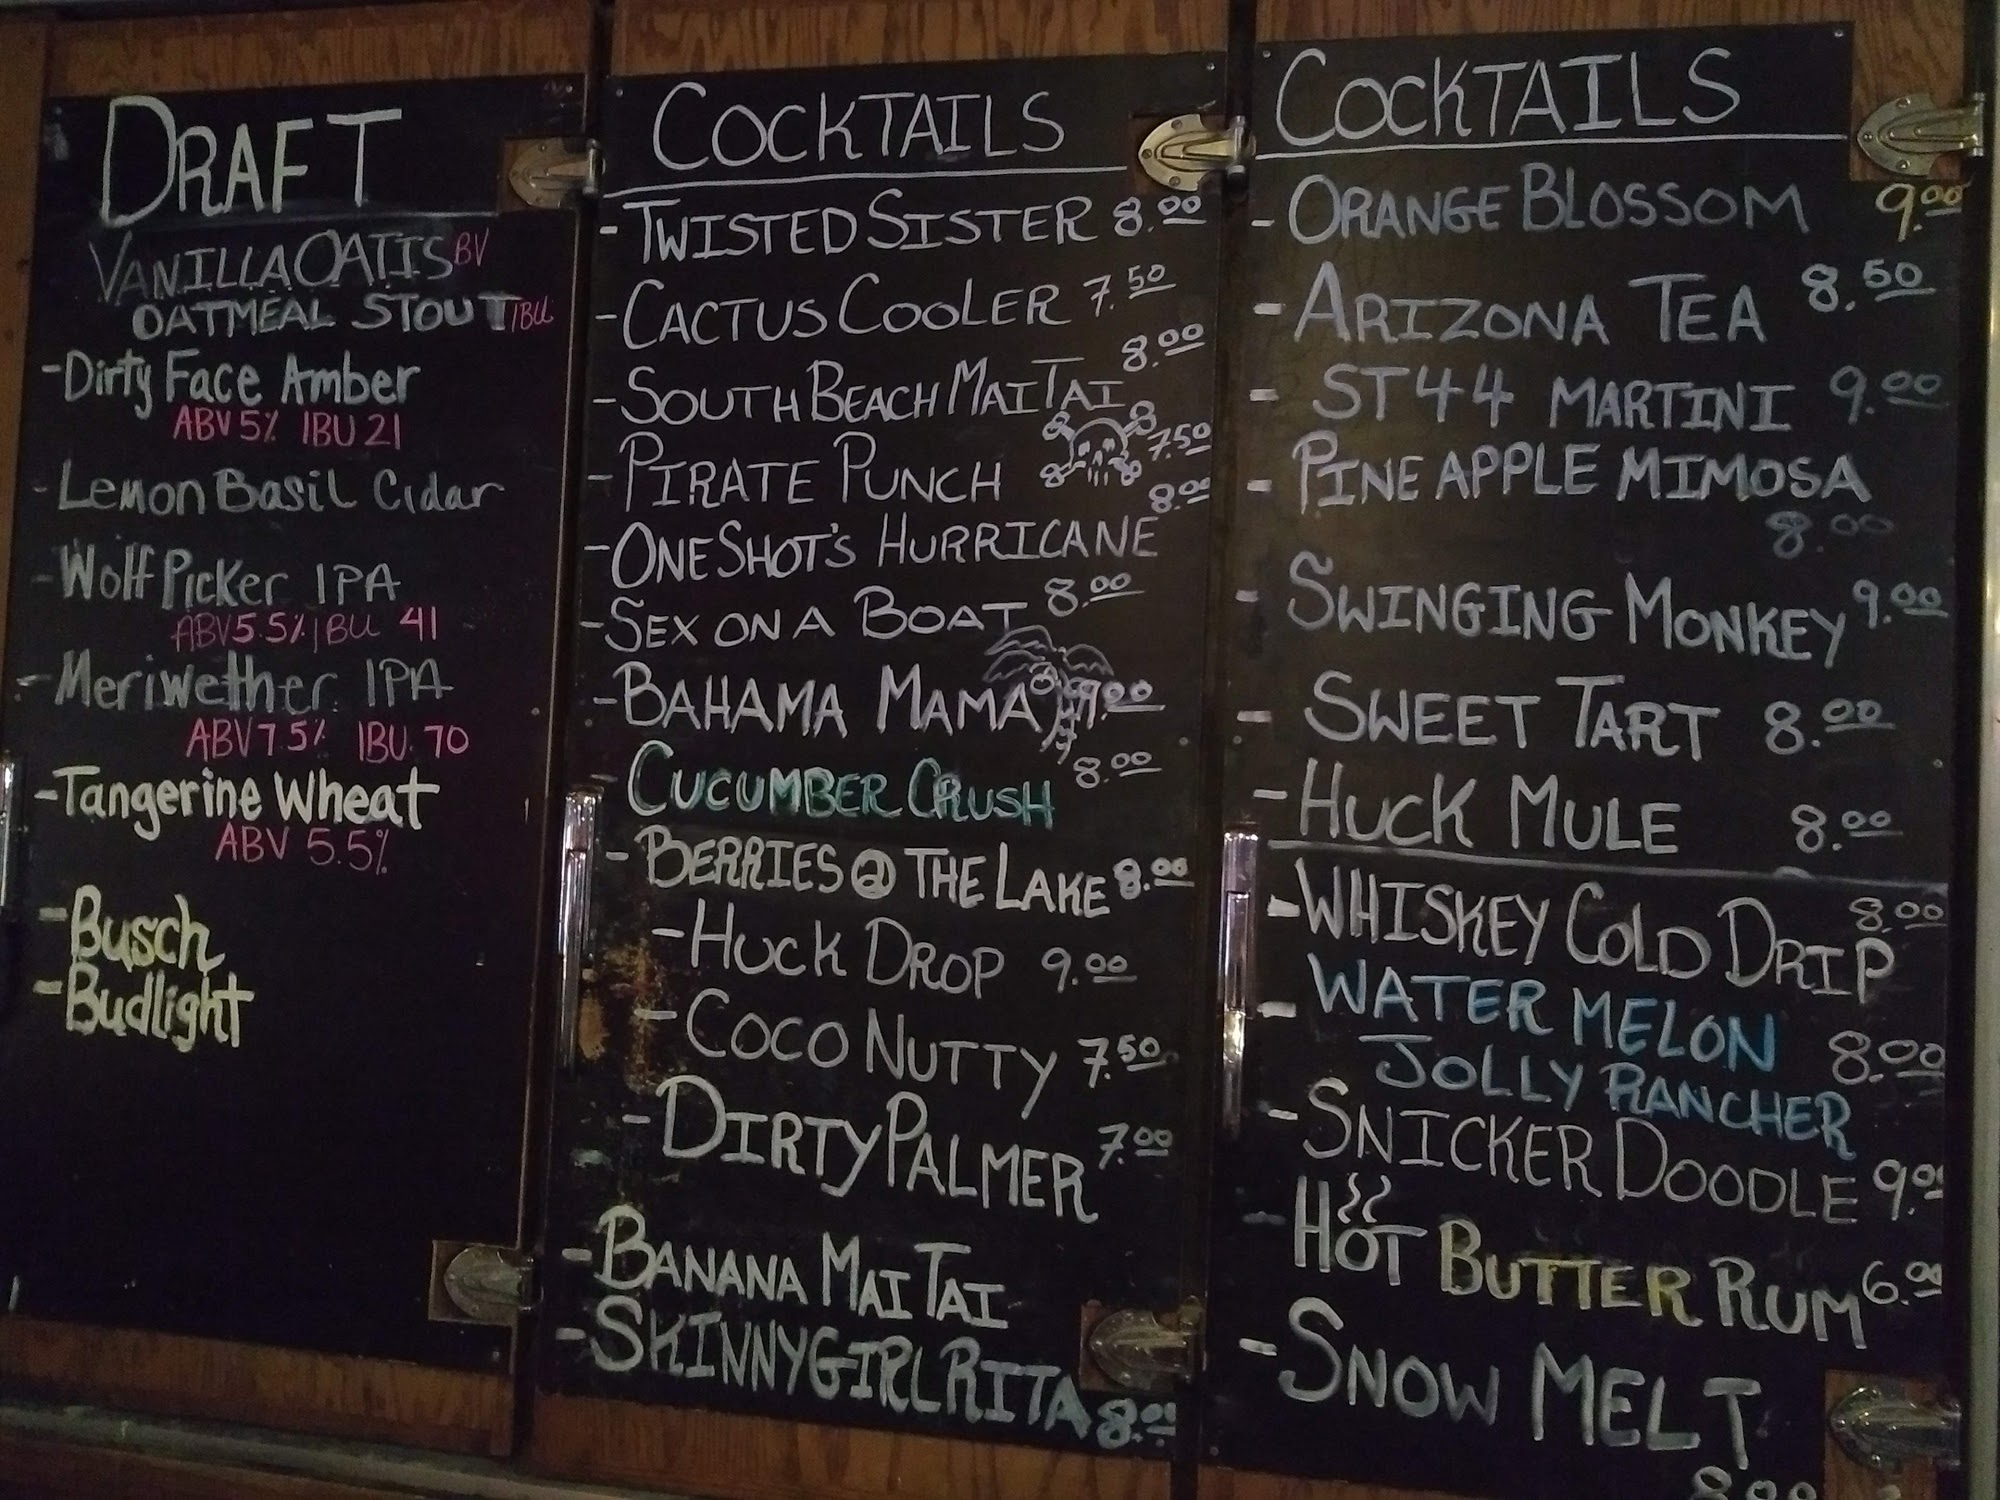 DRAFT
VANILLA OATIS BV
OATMEAL STOUT IBU
-Dirty Face Amber
ABV 5% IBU 21
-Lemon Basil Cidar
-Wolf Picker IPA
ABV 5.5% IBU 41
-Meriwether IPA
ABV 7.5% IBU 70
-Tangerine Wheat
ABV 5.5%
-Busch
-Budlight
COCKTAILS
-TWISTED SISTER 8.00
-CACTUS COOLER 7.50
-SOUTH BEACH MAI TAI 8.00
-PIRATE PUNCH 7.50
-ONE SHOT'S HURRICANE 8.00
-SEX ON A BOAT 8.00
-BAHAMA MAMA 9.00
-CUCUMBER CRUSH 8.00
-BERRIES @ THE LAKE 8.00
-HUCK DROP 9.00
-COCO NUTTY 7.50
-DIRTY PALMER 7.00
-BANANA MAI TAI
-SKINNYGIRL RITA 8.00
COCKTAILS
-ORANGE BLOSSOM 9.00
-ARIZONA TEA 8.50
-ST 44 MARTINI 9.00
-PINEAPPLE MIMOSA
8.00
-SWINGING MONKEY 9.00
-SWEET TART 8.00
-HUCK MULE 8.00
-WHISKEY COLD DRIP 8.00
-WATER MELON
JOLLY RANCHER 8.00
-SNICKER DOODLE 9.00
-HOT BUTTER RUM 6.00
-SNOW MELT
8.00